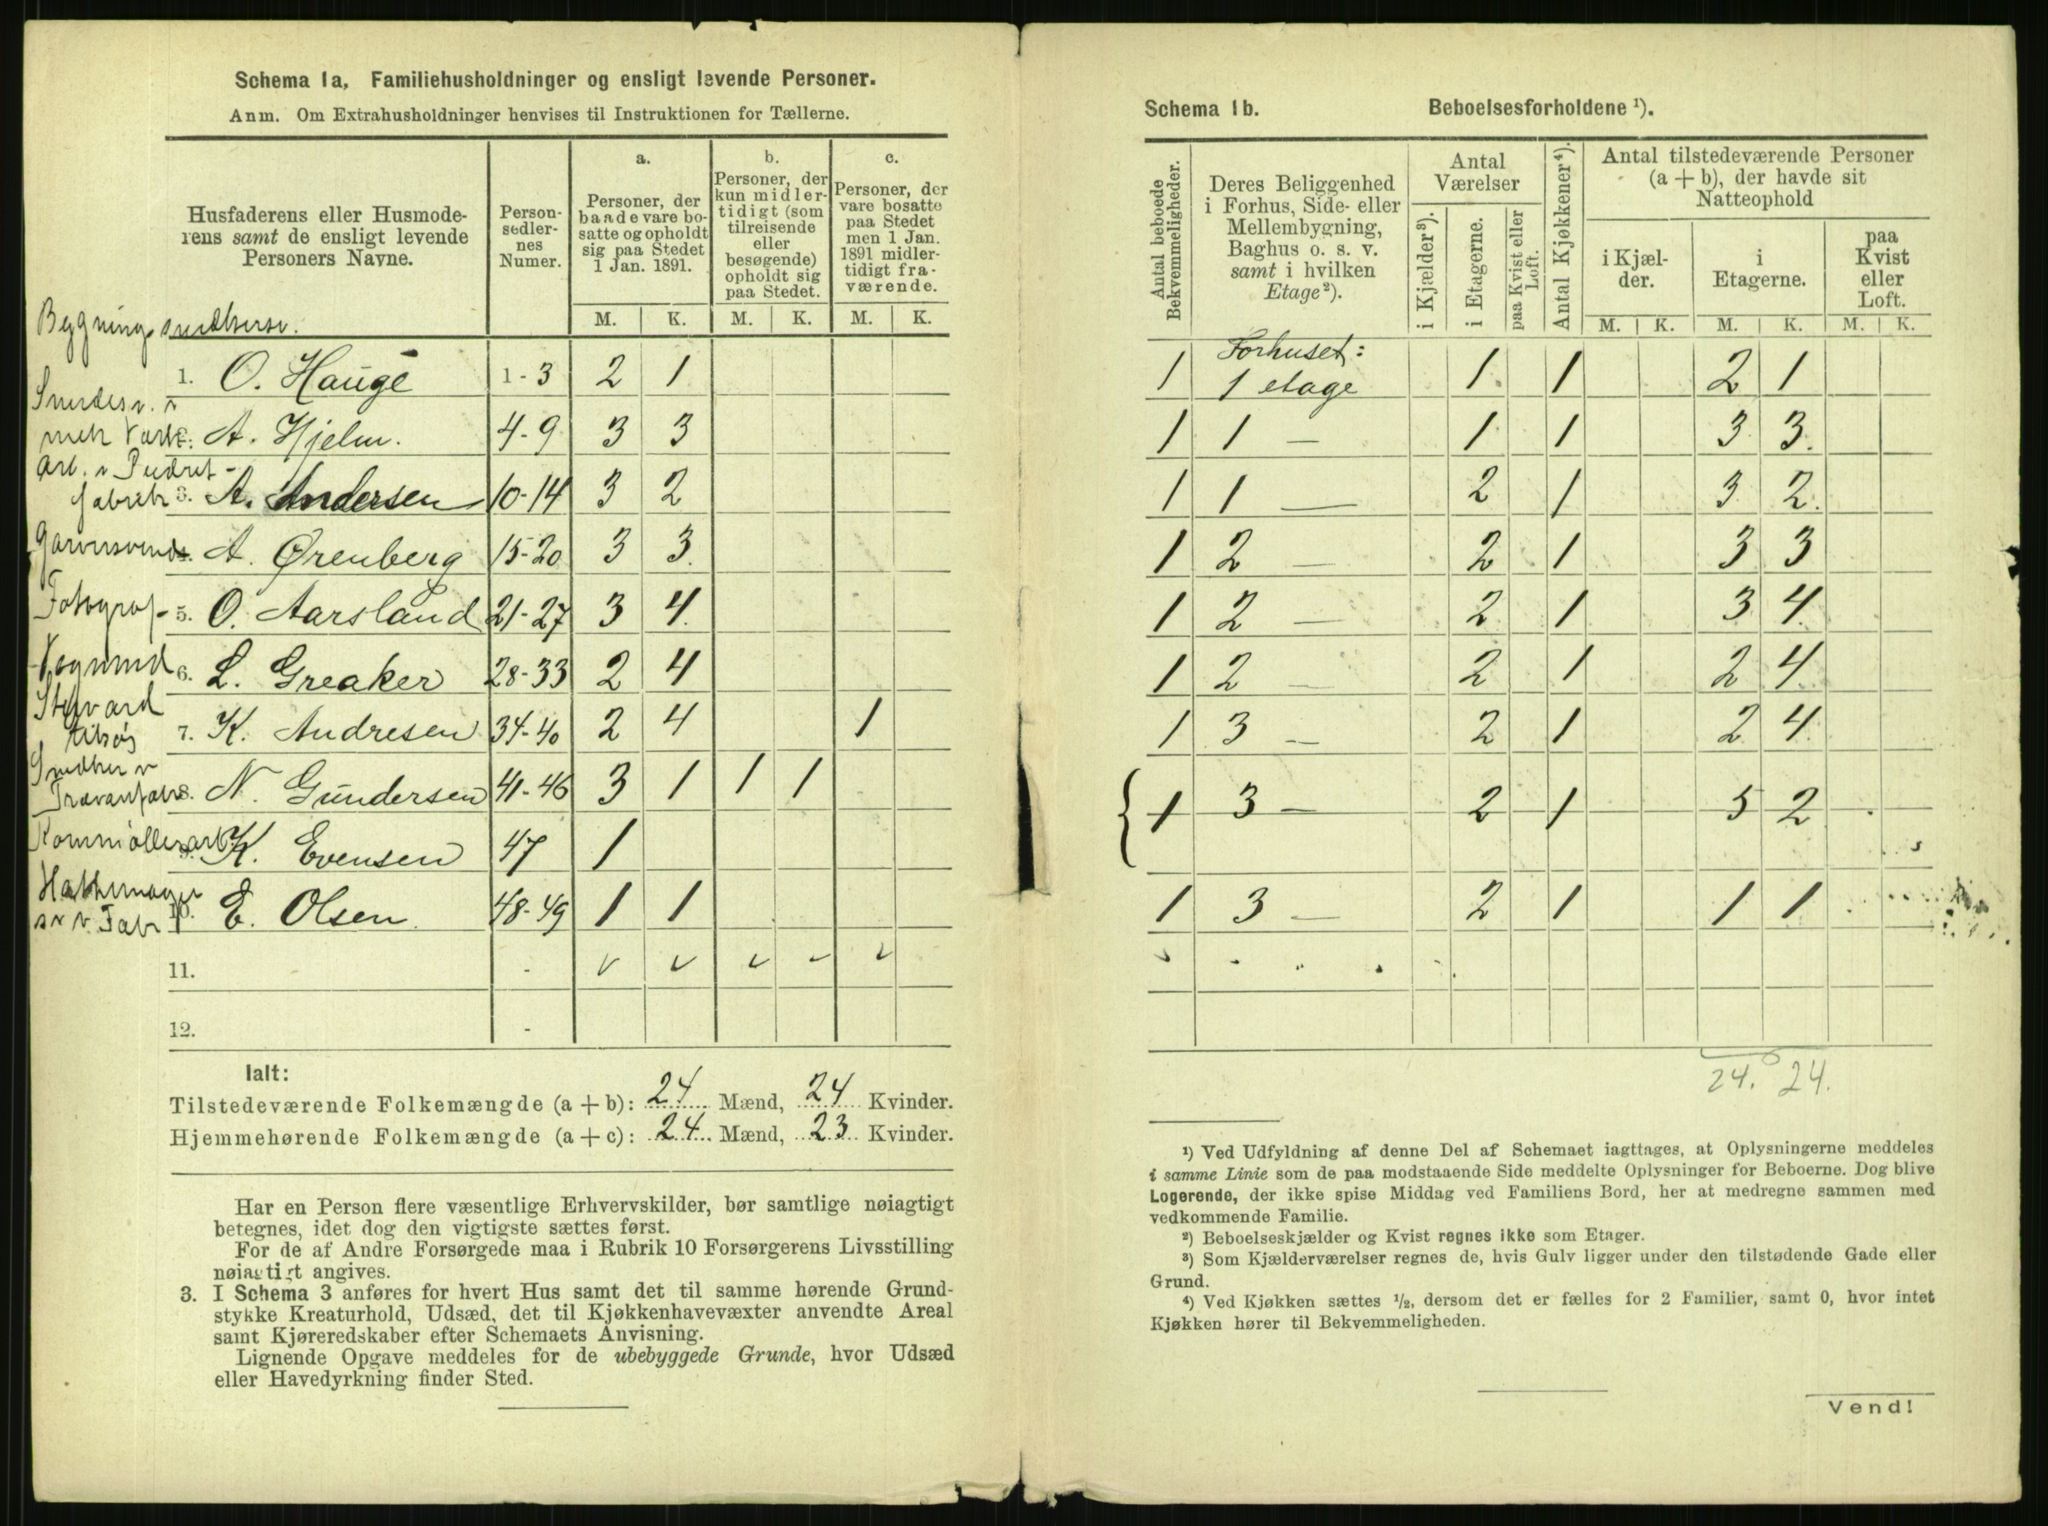 Schema 1a, Familiehusholdninger og ensligt levende Personer.
Anm. Om Extrahusholdninger henvises til Instruktionen for Tællerne.
Husfaderens eller Husmoderens samt de ensligt levende Personers Navne.
Personsedlernes Numer.
a.
Personer, der baade vare bosatte og opholdt sig paa Stedet 1 Jan. 1891.
b.
Personer, der kun midlertidigt (som tilreisende eller besøgende) opholdt sig paa Stedet.
c.
Personer, der vare bosatte paa Stedet men 1 Jan. 1891 midlertidigt fraværende.
M. K. M. K. M. K.
1. O. Hauge 1-3 2 1
A. Hjelm. 4-9 3 3
3. A. Andersen 10-14 3 2
Garversvend A. Ørenberg 15-20 3 3
Fotograf 5. O. Aarsland 21-27 3 4
6. L. Greaker 28-33 2 4
Stewart
7. K. Andresen 34-40 2 4 1
8. N. Gundersen 41-46 3 1 1 1
K. Evensen 47 1
10. E. Olsen. 48-49 1 1
11.
12.
Ialt:
Tilstedeværende Folkemængde (a + b): 24 Mænd, 24 Kvinder.
Hjemmehørende Folkemængde (a + c): 24 Mænd, 23 Kvinder.
Har en Person flere væsentlige Erhvervskilder, bør samtlige nøiagtigt
betegnes, idet dog den vigtigste sættes først.
For de af Andre Forsørgede maa i Rubrik 10 Forsørgerens Livsstilling
nøiagtigt angives.
3. I Schema 3 anføres for hvert Hus samt det til samme hørende Grund-
stykke Kreaturhold, Udsæd, det til Kjøkkenhavevæxter anvendte Areal
samt Kjøreredskaber efter Schemaets Anvisning.
Lignende Opgave meddeles for de ubebyggede Grunde, hvor Udsæd
eller Havedyrkning finder Sted.
Schema 1b. Beboelsesforholdene ¹).
Antal beboede Bekvemmeligheder.
Deres Beliggenhed i Forhus, Side- eller Mellembygning, Baghus o. s. v. samt i hvilken Etage²).
Antal Værelser
i Kjælder³).
i Etagerne.
paa Kvist eller Loft.
Antal Kjøkkener⁴).
Antal tilstedeværende Personer (a + b), der havde sit Natteophold
i Kjælder.
i Etagerne.
paa Kvist eller Loft.
M. K. M. K. M. K.
Forhuset:
1 1 etage 1 1 2 1
1 1 — 1 1 3 3
1 1 — 2 1 3 2
1 2 — 2 1 3 3
1 2 — 2 1 3 4
1 2 — 2 1 2 4
1 3 — 2 1 2 4
1 3 — 2 1 5 2
1 3 — 2 1 1 1
24. 24.
¹) Ved Udfyldning af denne Del af Schemaet iagttages, at Oplysningerne meddeles
i samme Linie som de paa modstaaende Side meddelte Oplysninger for Beboerne. Dog blive
Logerende, der ikke spise Middag ved Familiens Bord, her at medregne sammen med
vedkommende Familie.
²) Beboelseskjælder og Kvist regnes ikke som Etager.
³) Som Kjælderværelser regnes de, hvis Gulv ligger under den tilstødende Gade eller
Grund.
⁴) Ved Kjøkken sættes ½, dersom det er fælles for 2 Familier, samt 0, hvor intet
Kjøkken hører til Bekvemmeligheden.
Vend!